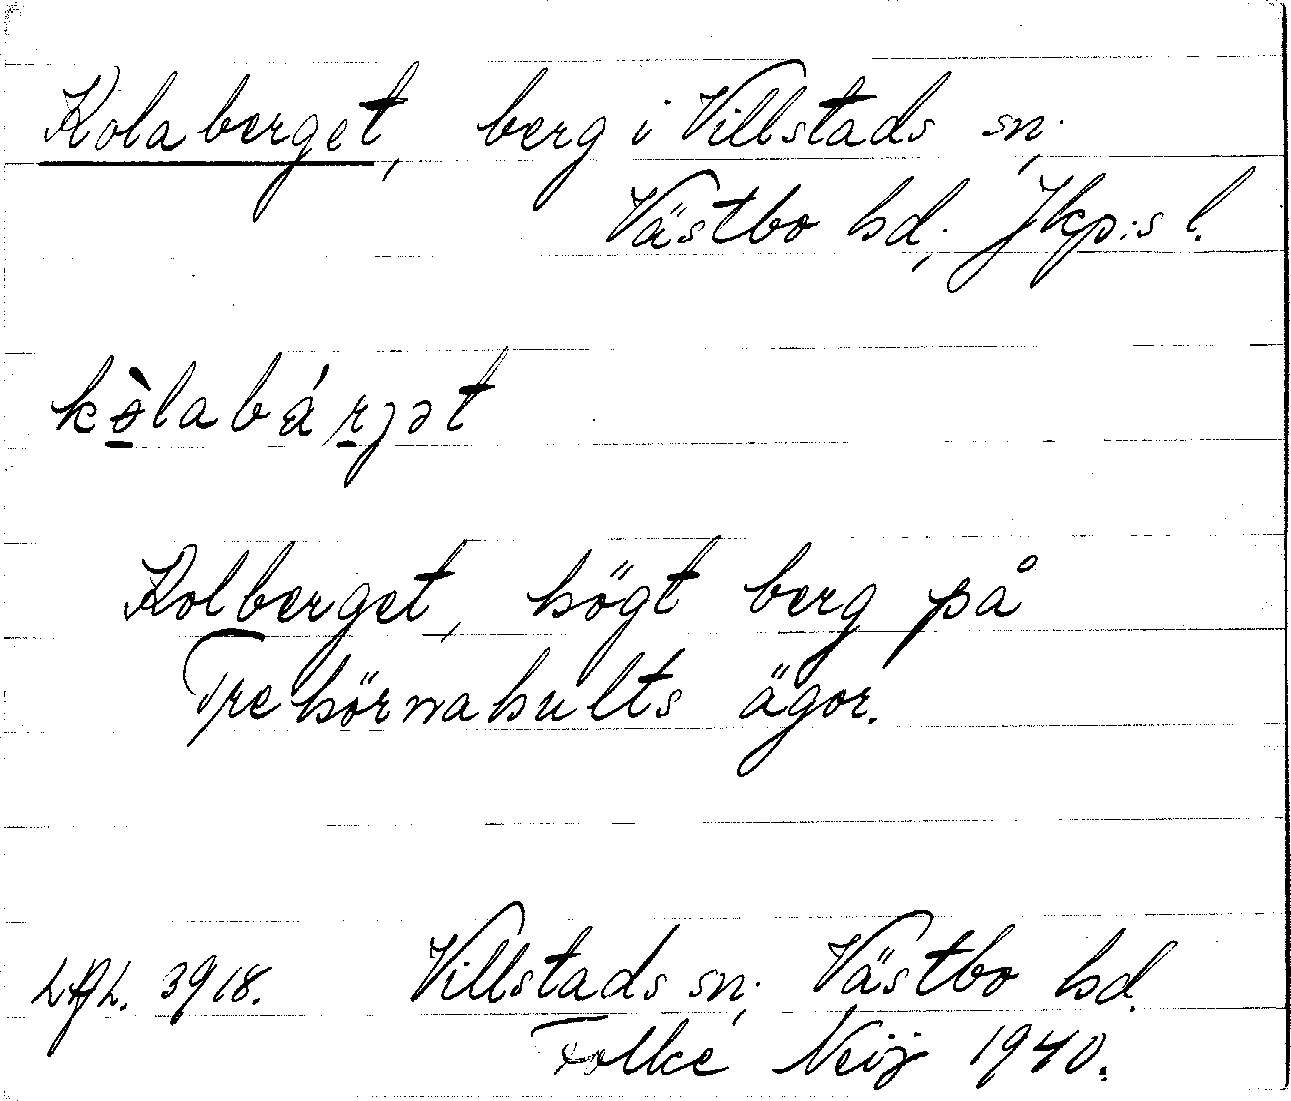 Kolaberget, berg i Villstads sn.
Västbo hd, Jkp:s l.
kɵ̀labárjət
Kolberget, högt berg på
Trehörnahults ägor.
3918. Villstads sn; Västbo hd.
Folke Neij 1940.